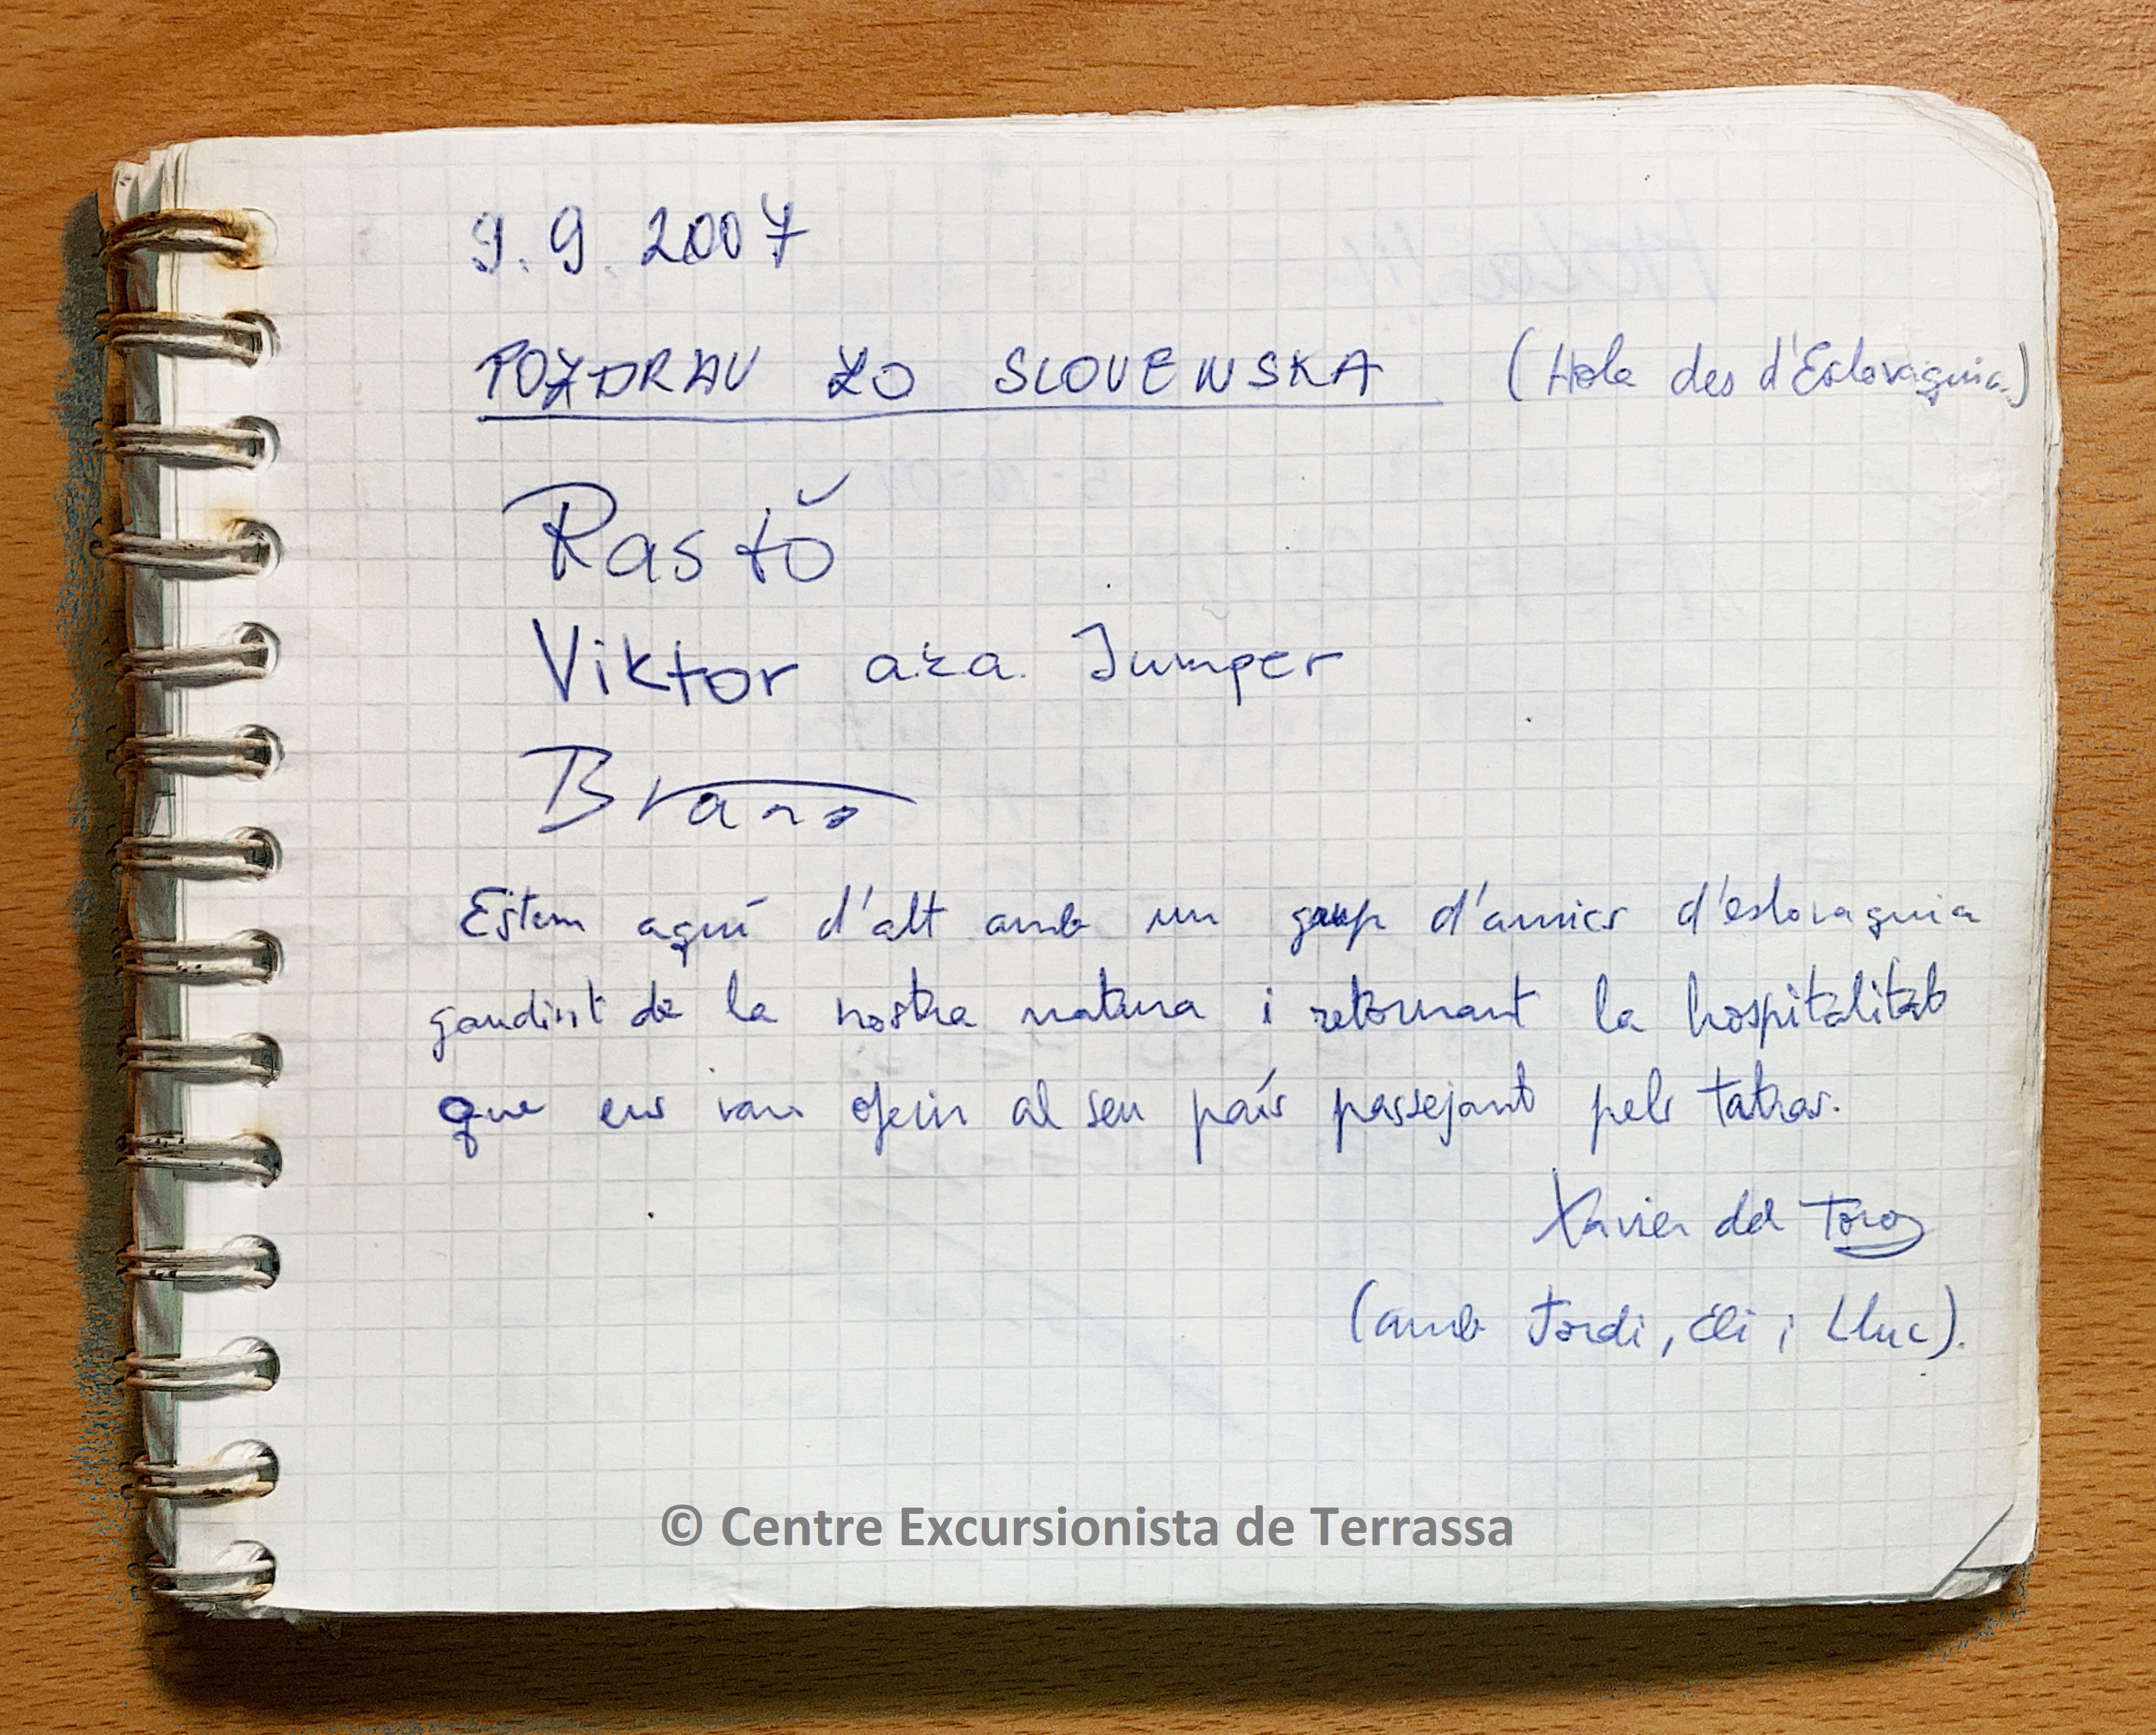 9.9.2007
POZDRAV ZO SLOVENSKA (Hola des d'Eslovaquia)
Rastǒ
Viktor a.k.a. Jumper
Brano
Estem aquí d'alt amb un grup d'amics d'eslovaquia
gaudint de la nostra natura i retornant la hospitalitat
que ens van oferir al seu país passejant pels tatras.
Xavier del Toro
(amb Jordi, Eli i Lluc).
© Centre Excursionista de Terrassa